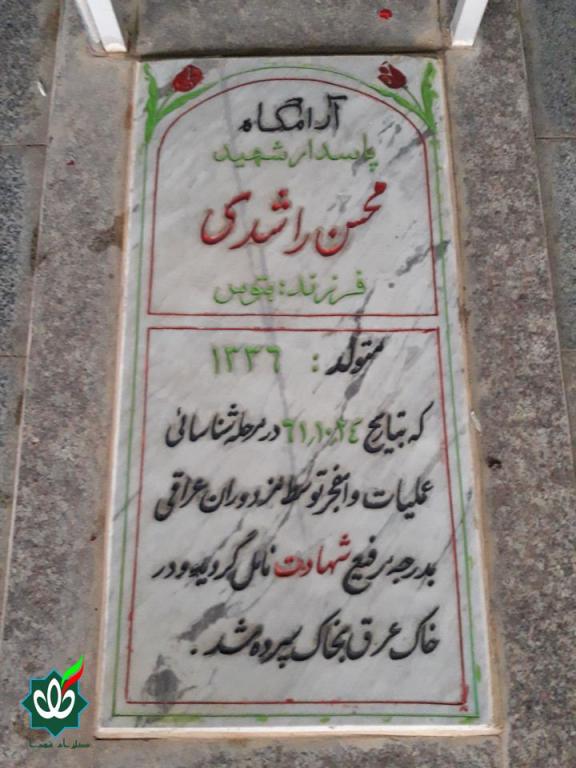 آرامگاه
پاسدار شهید
محسن راشدی
فرزند:
متولد: ۱۳۳۶
که بتایخ ۶۱,۱۰,۲٤ در مرحله شناسائی
عملیات والفجر توسط مزدوران عراقی
بدرجه رفیع شهادت نائل گردید و در
خاک عرق بخاک سپرده شد.